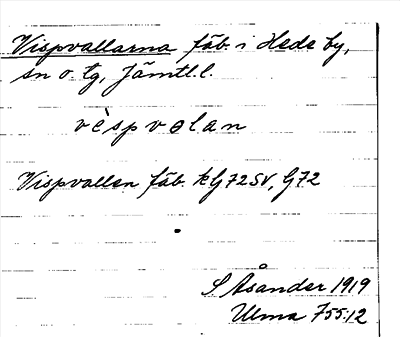 Vispvallarna fäb. i Hede by,
sn o. tg, Jämtl. l.
vèspvalan
Vispvallen fäb. kG72SV, G72
S Åsander 1919
Ulma 755:12